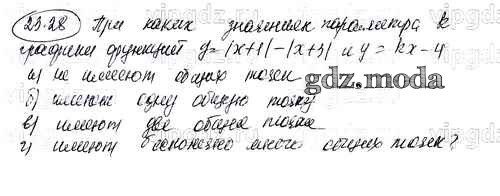 23.28 При каких значениях параметра k
графики функций y=|x+1|-|x+3| и y=kx-4
а) не имеют общих точек
б) имеют одну общую точку
в) имеют две общие точки
г) имеют бесконечно много общих точек?
gdz.moda